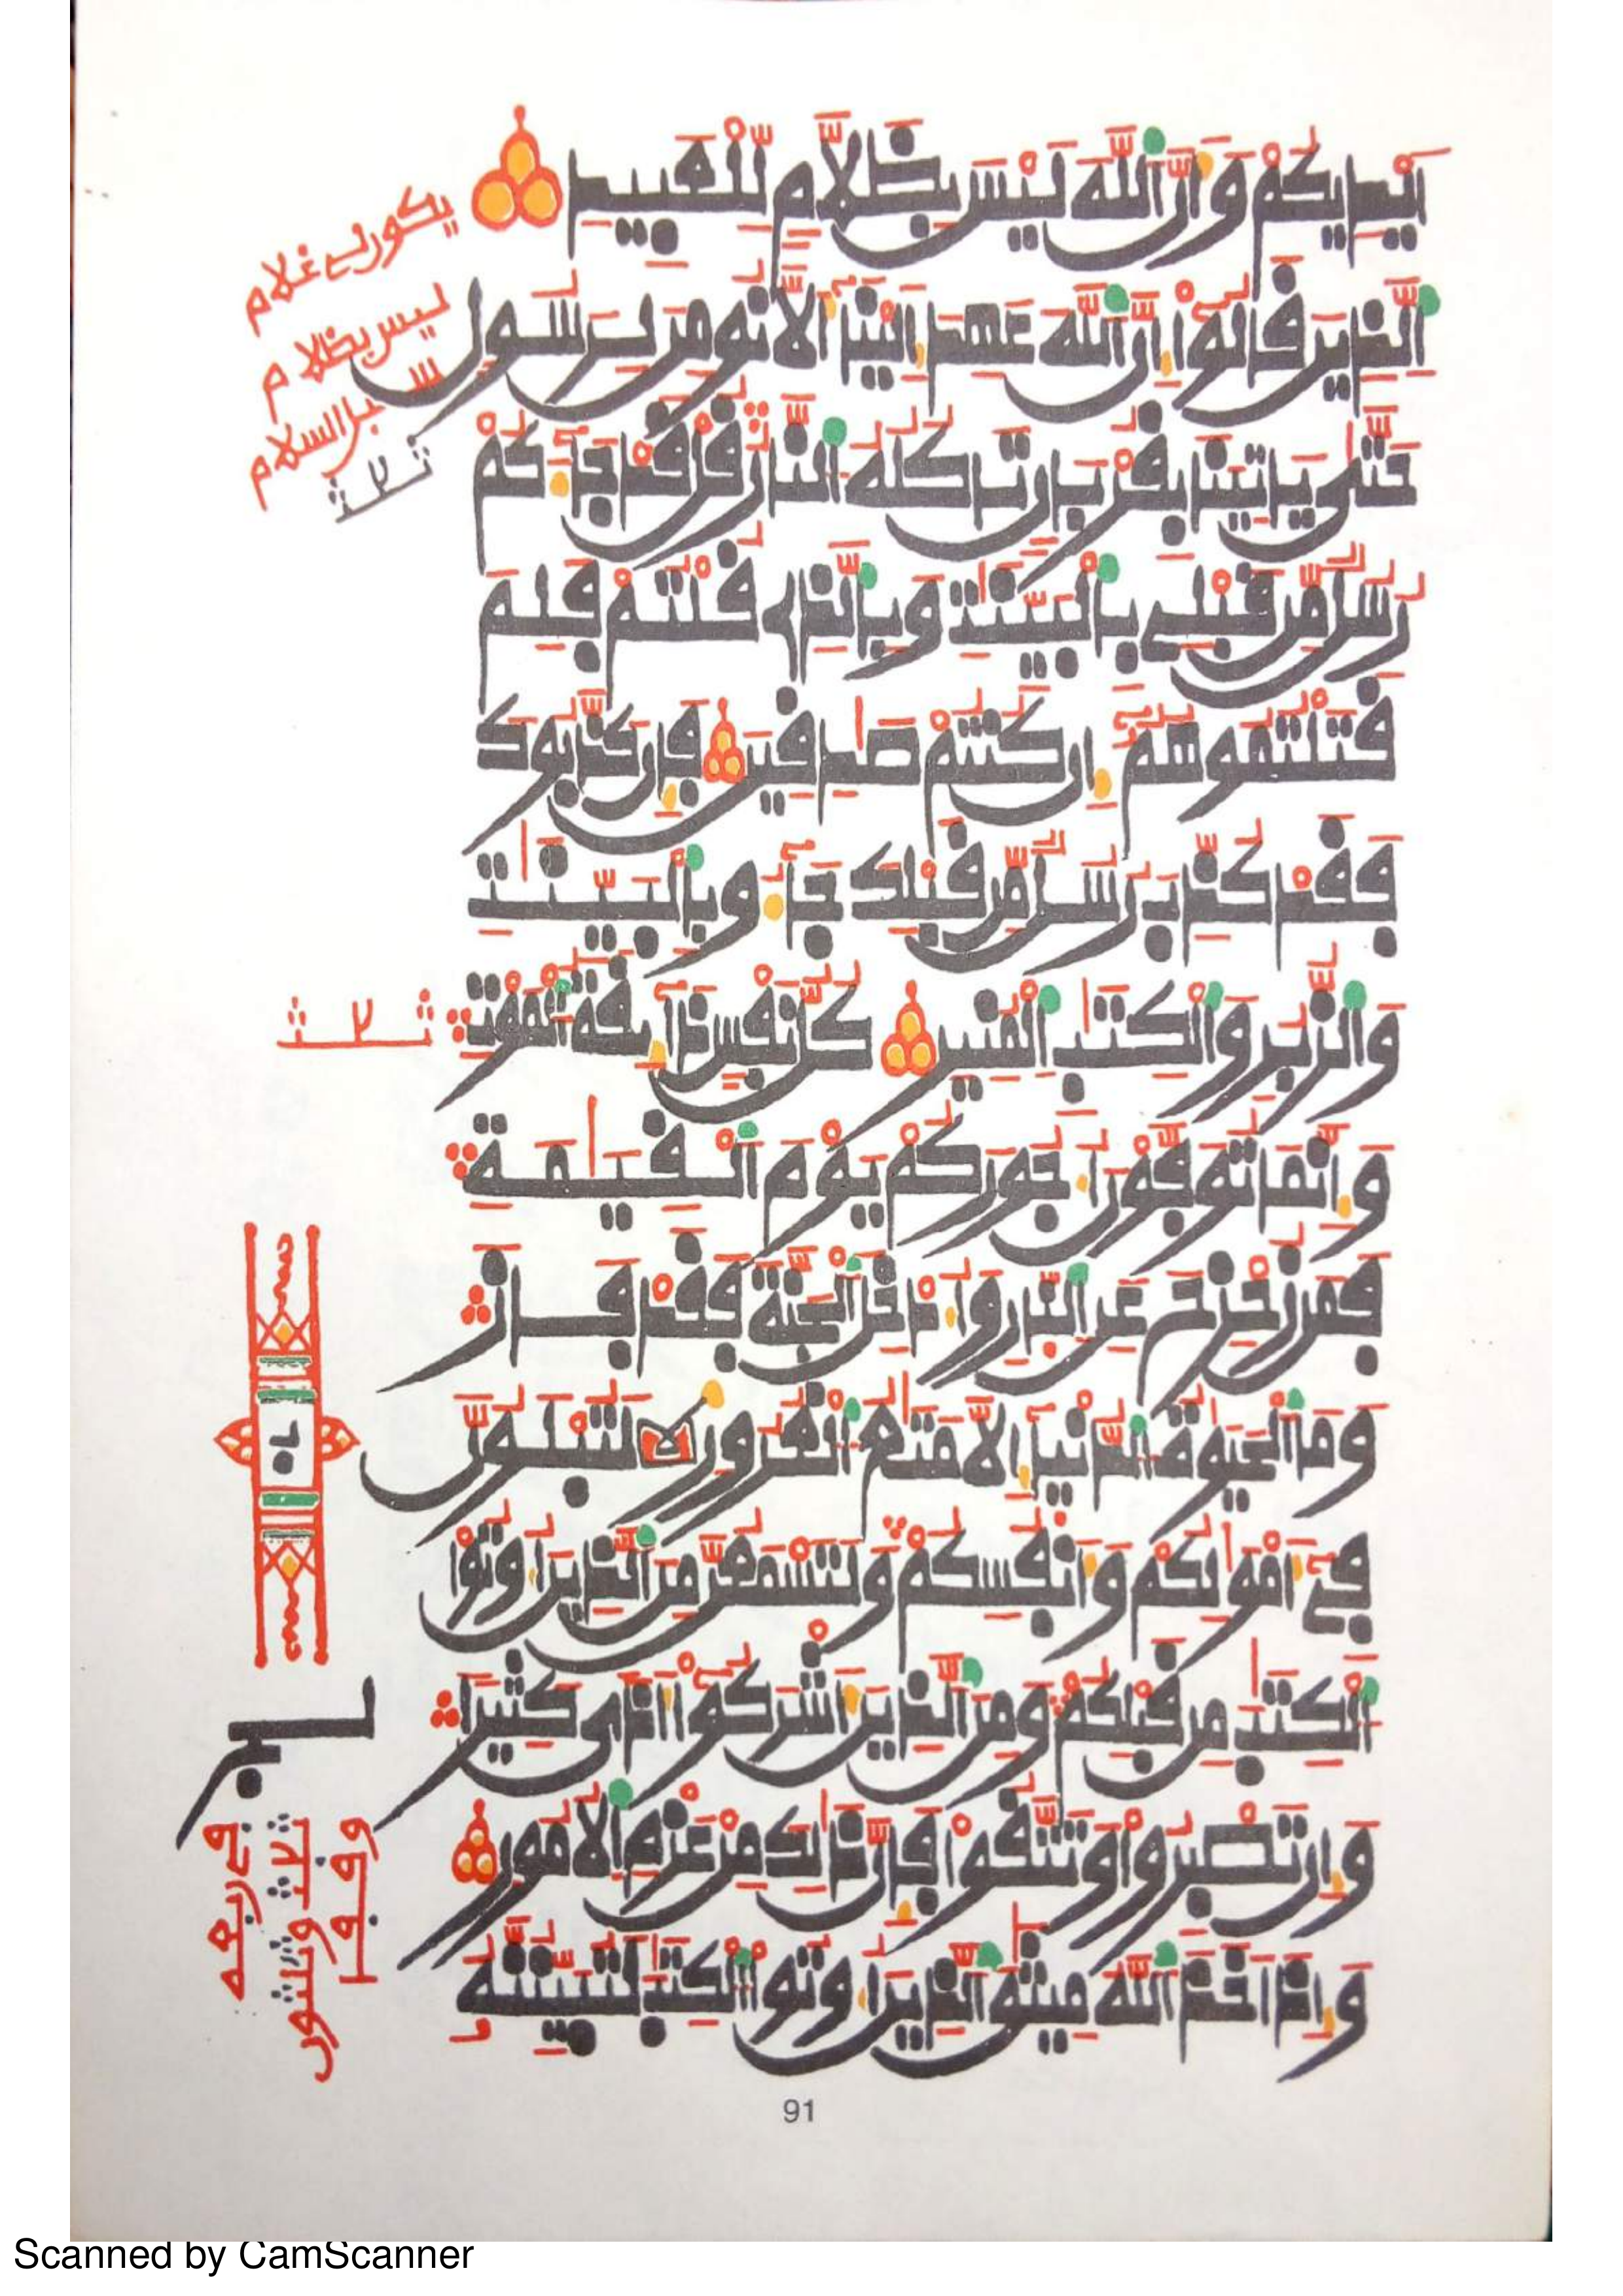 أَيْدِيكُمْ وَأَنَّ ٱللَّهَ لَيْسَ بِظَلَّامٍ لِّلْعَبِيدِ
ٱلَّذِينَ قَالُوٓا۟ إِنَّ ٱللَّهَ عَهِدَ إِلَيْنَآ أَلَّا نُومِنَ لِرَسُولٍ
حَتَّىٰ يَاتِيَنَا بِقُرْبَانٍ تَاكُلُهُ ٱلنَّارُ قُلْ قَدْ جَآءَكُمْ
رُسُلٌ مِّن قَبْلِے بِٱلْبَيِّنَٰتِ وَبِٱلَّذِے قُلْتُمْ فَلِمَ
قَتَلْتُمُوهُمُۥٓ إِن كُنتُمْ صَٰدِقِينَ فَإِن كَذَّبُوكَ
فَقَدْ كُذِّبَ رُسُلٌ مِّن قَبْلِكَ جَآءُو بِٱلْبَيِّنَٰتِ
وَٱلزُّبُرِ وَٱلْكِتَٰبِ ٱلْمُنِيرِ كُلُّ نَفْسٍ ذَآئِقَةُ ٱلْمَوْتِ
وَإِنَّمَا تُوَفَّوْنَ أُجُورَكُمْ يَوْمَ ٱلْقِيَٰمَةِ
فَمَن زُحْزِحَ عَنِ ٱلنَّارِ وَأُدْخِلَ ٱلْجَنَّةَ فَقَدْ فَازَ
وَمَا ٱلْحَيَوٰةُ ٱلدُّنْيَآ إِلَّا مَتَٰعُ ٱلْغُرُورِ لَتُبْلَوُنَّ
فِےٓ أَمْوَٰلِكُمْ وَأَنفُسِكُمْ وَلَتَسْمَعُنَّ مِنَ ٱلَّذِينَ أُوتُوا۟
ٱلْكِتَٰبَ مِن قَبْلِكُمْ وَمِنَ ٱلَّذِينَ أَشْرَكُوٓا۟ أَذىً كَثِيراً
وَإِن تَصْبِرُوا۟ وَتَتَّقُوا۟ فَإِنَّ ذَٰلِكَ مِنْ عَزْمِ ٱلْأُمُورِ
وَإِذَ اَخَذَ ٱللَّهُ مِيثَٰقَ ٱلَّذِينَ أُوتُوا۟ ٱلْكِتَٰبَ لَتُبَيِّنُنَّهُۥ
ليس بظلام
91
Scanned by CamScanner